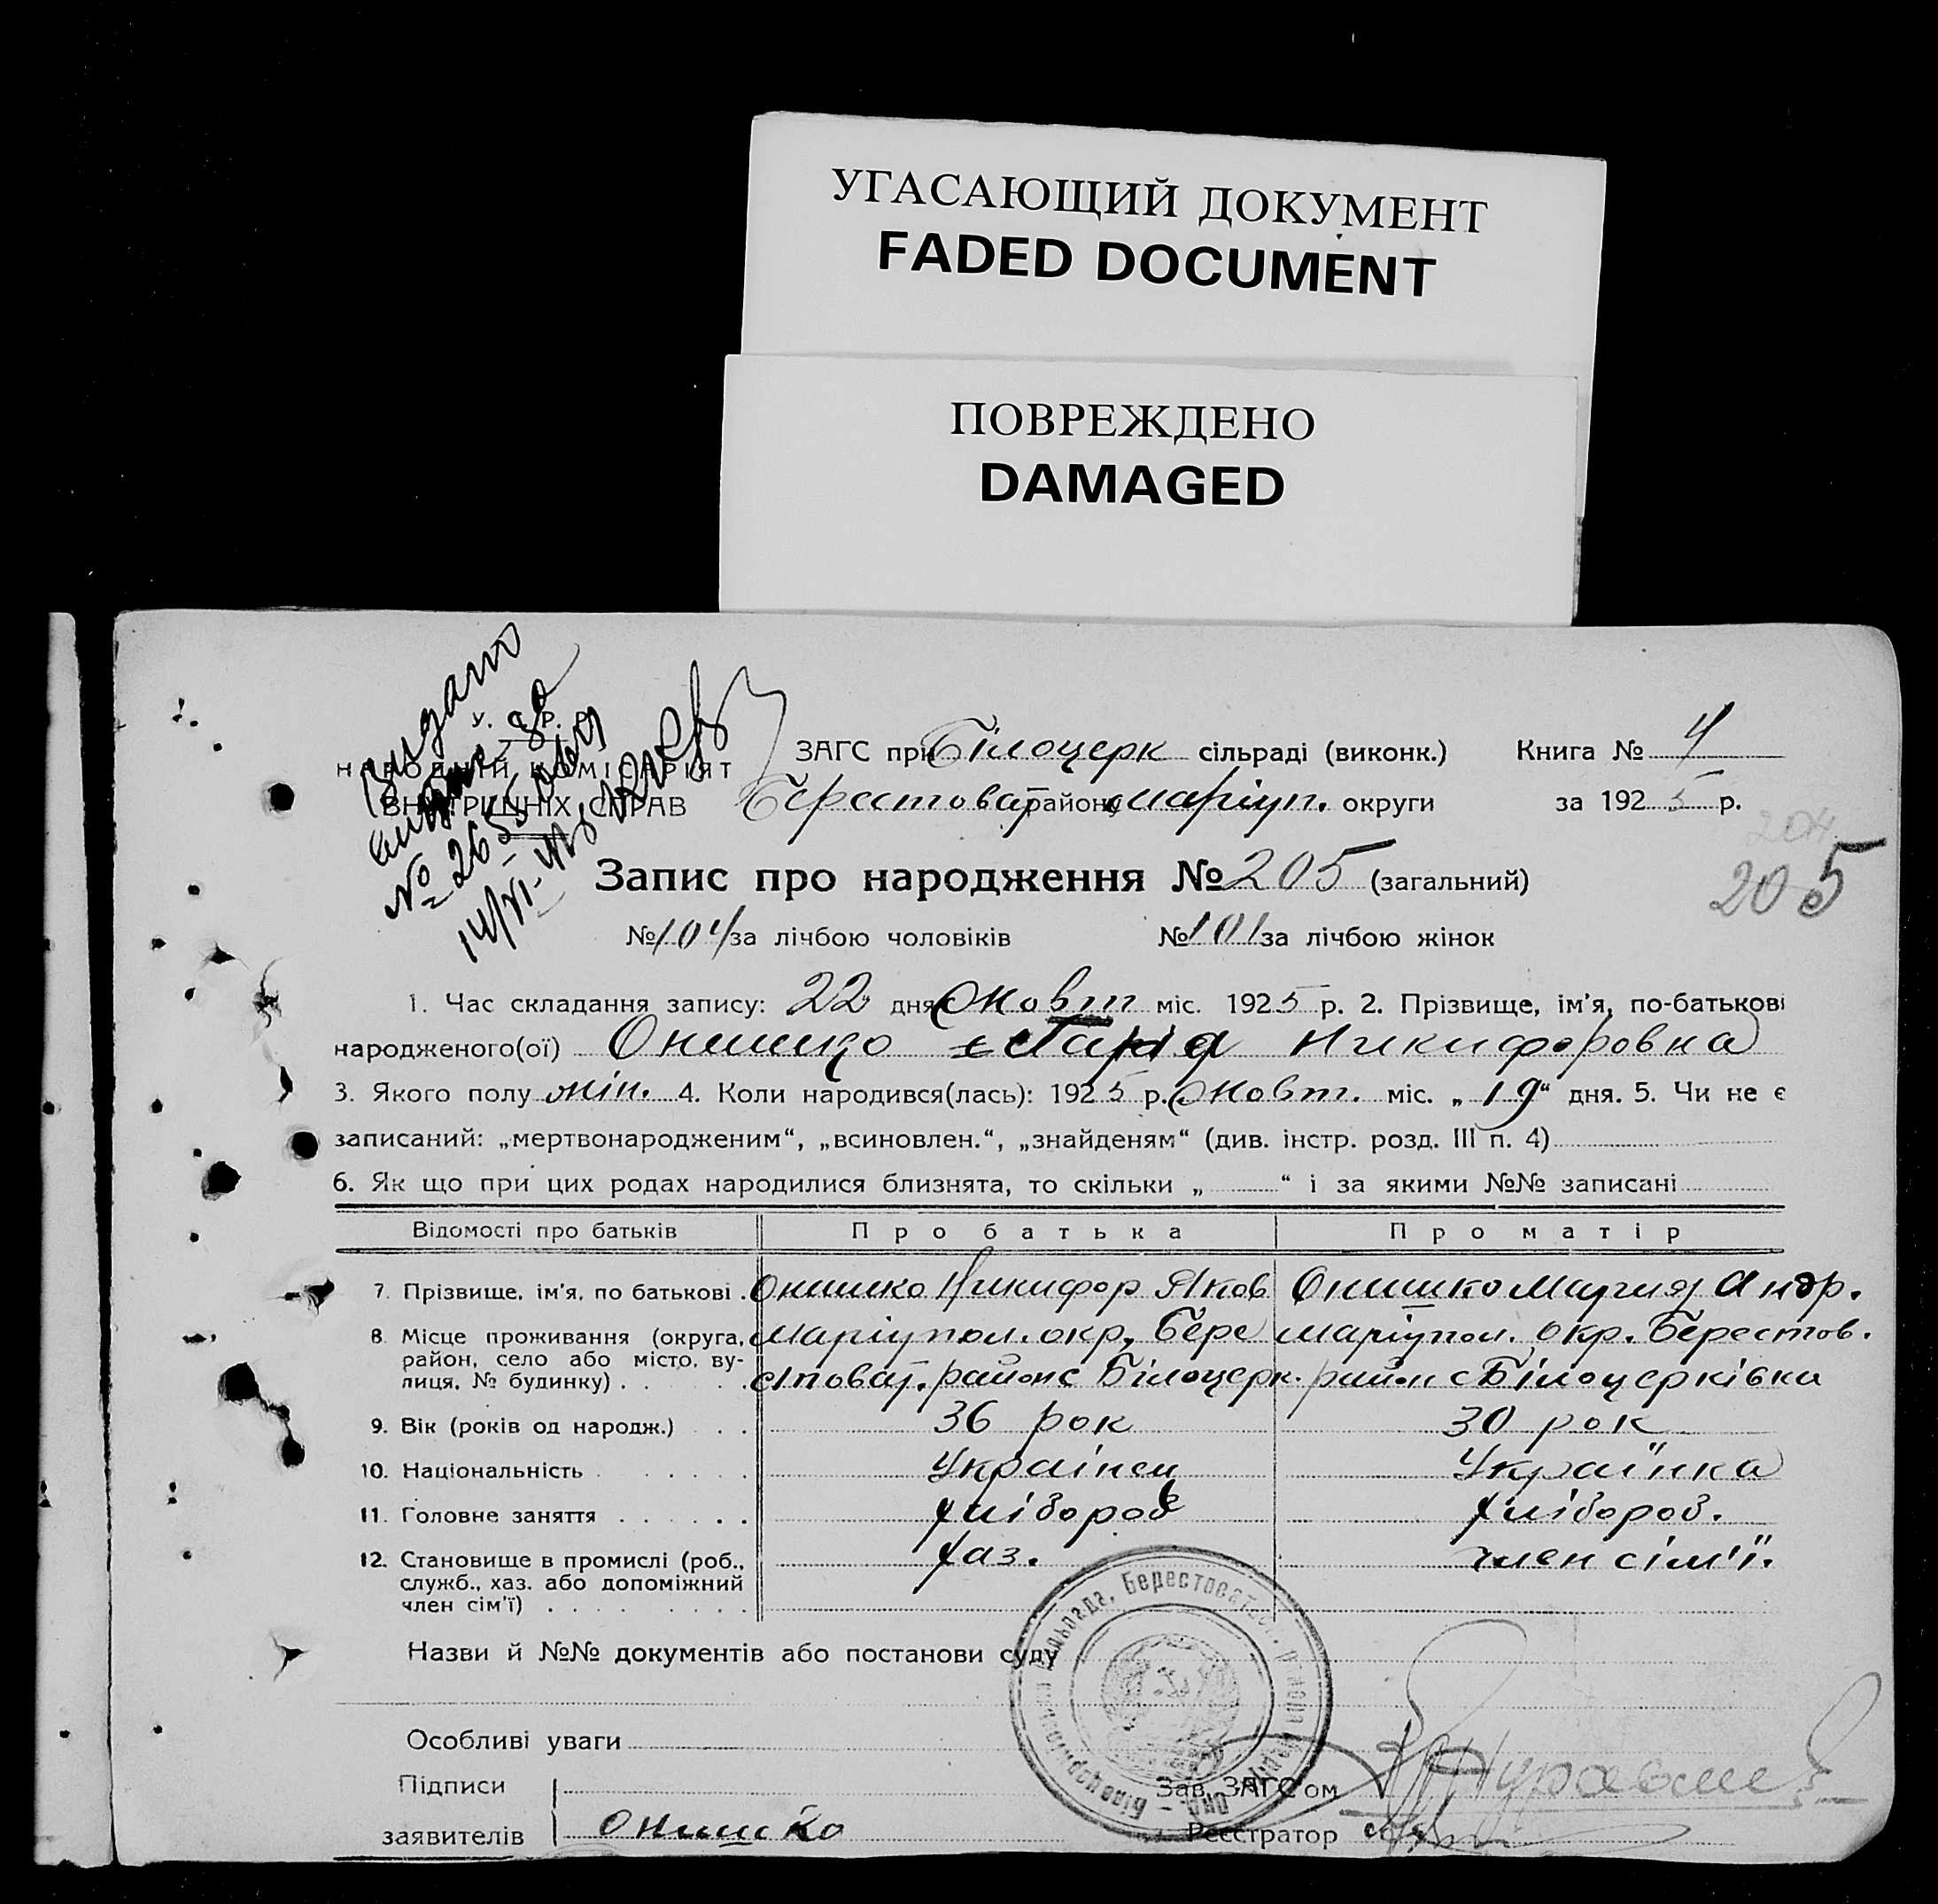 УГАСАЮЩИЙ ДОКУМЕНТ
FADED DOCUMENT
ПОВРЕЖДЕНО
DAMAGED
Видано
№ 265
14/VI-
У. С. Р. Р.
НАРОДНІЙ КОМІСАРІЯТ
ВНУТРІШНІХ СПРАВ
ЗАГС при Білоцерк сільраді (виконк.) Книга № 4
Берестоват району Маріуп. округи за 1925 р.
204
205
Запис про народження № 205 (загальний)
№ 104 за лічбою чоловіків № 101 за лічбою жінок
1. Час складання запису: 22 дня Жовт міс. 1925 р. 2. Прізвище, ім'я, по-батькові
народженого(ої) Онишко Марія Никифоровна
3. Якого полу жін. 4. Коли народився(лась): 1925 р. Жовт. міс. „19“ дня. 5. Чи не є
записаний: „мертвонародженим“, „всиновлен.“, „знайденям“ (див. інстр. розд. III п. 4)
6. Як що при цих родах народилися близнята, то скільки „ “ і за якими №№ записані
Відомості про батьків Про батька Про матір
7. Прізвище, ім'я, по батькові . Онишко Никифор Яков Онишко Мария Андр.
8. Місце проживання (округа, Маріупол. окр, Бере Маріупол. окр. Берестов.
район, село або місто, ву-
лиця, № будинку) . стоват. район с Білоцерк. район с Білоцерківка
9. Вік (років од народж.) 36 рок 30 рок
10. Національність Українец Українка
11. Головне заняття хлібороб хлібороб.
12. Становище в промислі (роб., хаз. член сім'ї.
служб., хаз. або допоміжний
член сім'ї)
Назви й №№ документів або постанови суду
Особливі уваги
Підписи
заявителів Онишко
Зав. ЗАГС'ом
Реєстратор
Білоцерківська Сільрада, Берестоват. Район